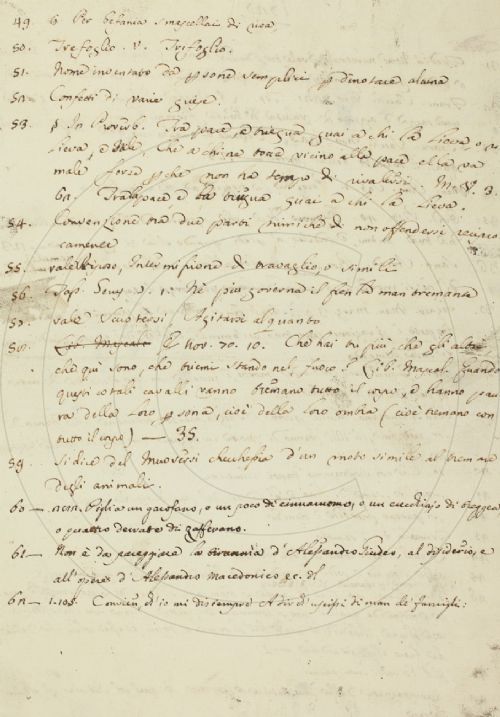 49. 6 Per befania smascellai di risa
50. Trefoglio. V. Trifoglio.
51. Nome inventato da psone semplici p dinotare alcuna
52. Confetti di varie guise.
53. p In Proverb. Tra pace, e tregua guai a chi la lieva, o
lieva, e vale, che a chi ne tocca vicino alla pace ella va
male forse pche non ha tempo di rivalersi. M. V. 3.
62. Tralla pace e la triegua guai a chi la lieva.
54. Convenzione tra due parti nimiche di non offendersi reciproc
camente
55. vale Riposo, Intermissione di travaglio, o simili
56. 5. 1. Ne più governa il fren la man tremante
57. vale Scuotersi Agitarsi alquanto
58. nov. 70. 10. Che hai tu più, che gli altri
che qui sono, che triemi stando nel fuoco? Lib. Mascal. Quando
questi cotali cavalli vanno tremano tutto il corpo, e hanno pau
ra della loro psona, cioè della loro ombra (cioè tremano con
tutto il corpo) — 35.
59. Si dice del Muoversi checchessia d'un moto simile al tremare
degli animali.
60 — Piglia un garofano, o un poco di cinnamomo, o un cucchiajo di treggea
o quattro derrate di zafferano.
61 — Non è da pareggiare la tirannia d'Alessandro, al disiderio, e
all'opere d'Alessandro Macedonico ec. di
62 — 1.105. Convien, ch'io mi distempre A dir d'uscissi di man de' famigli: